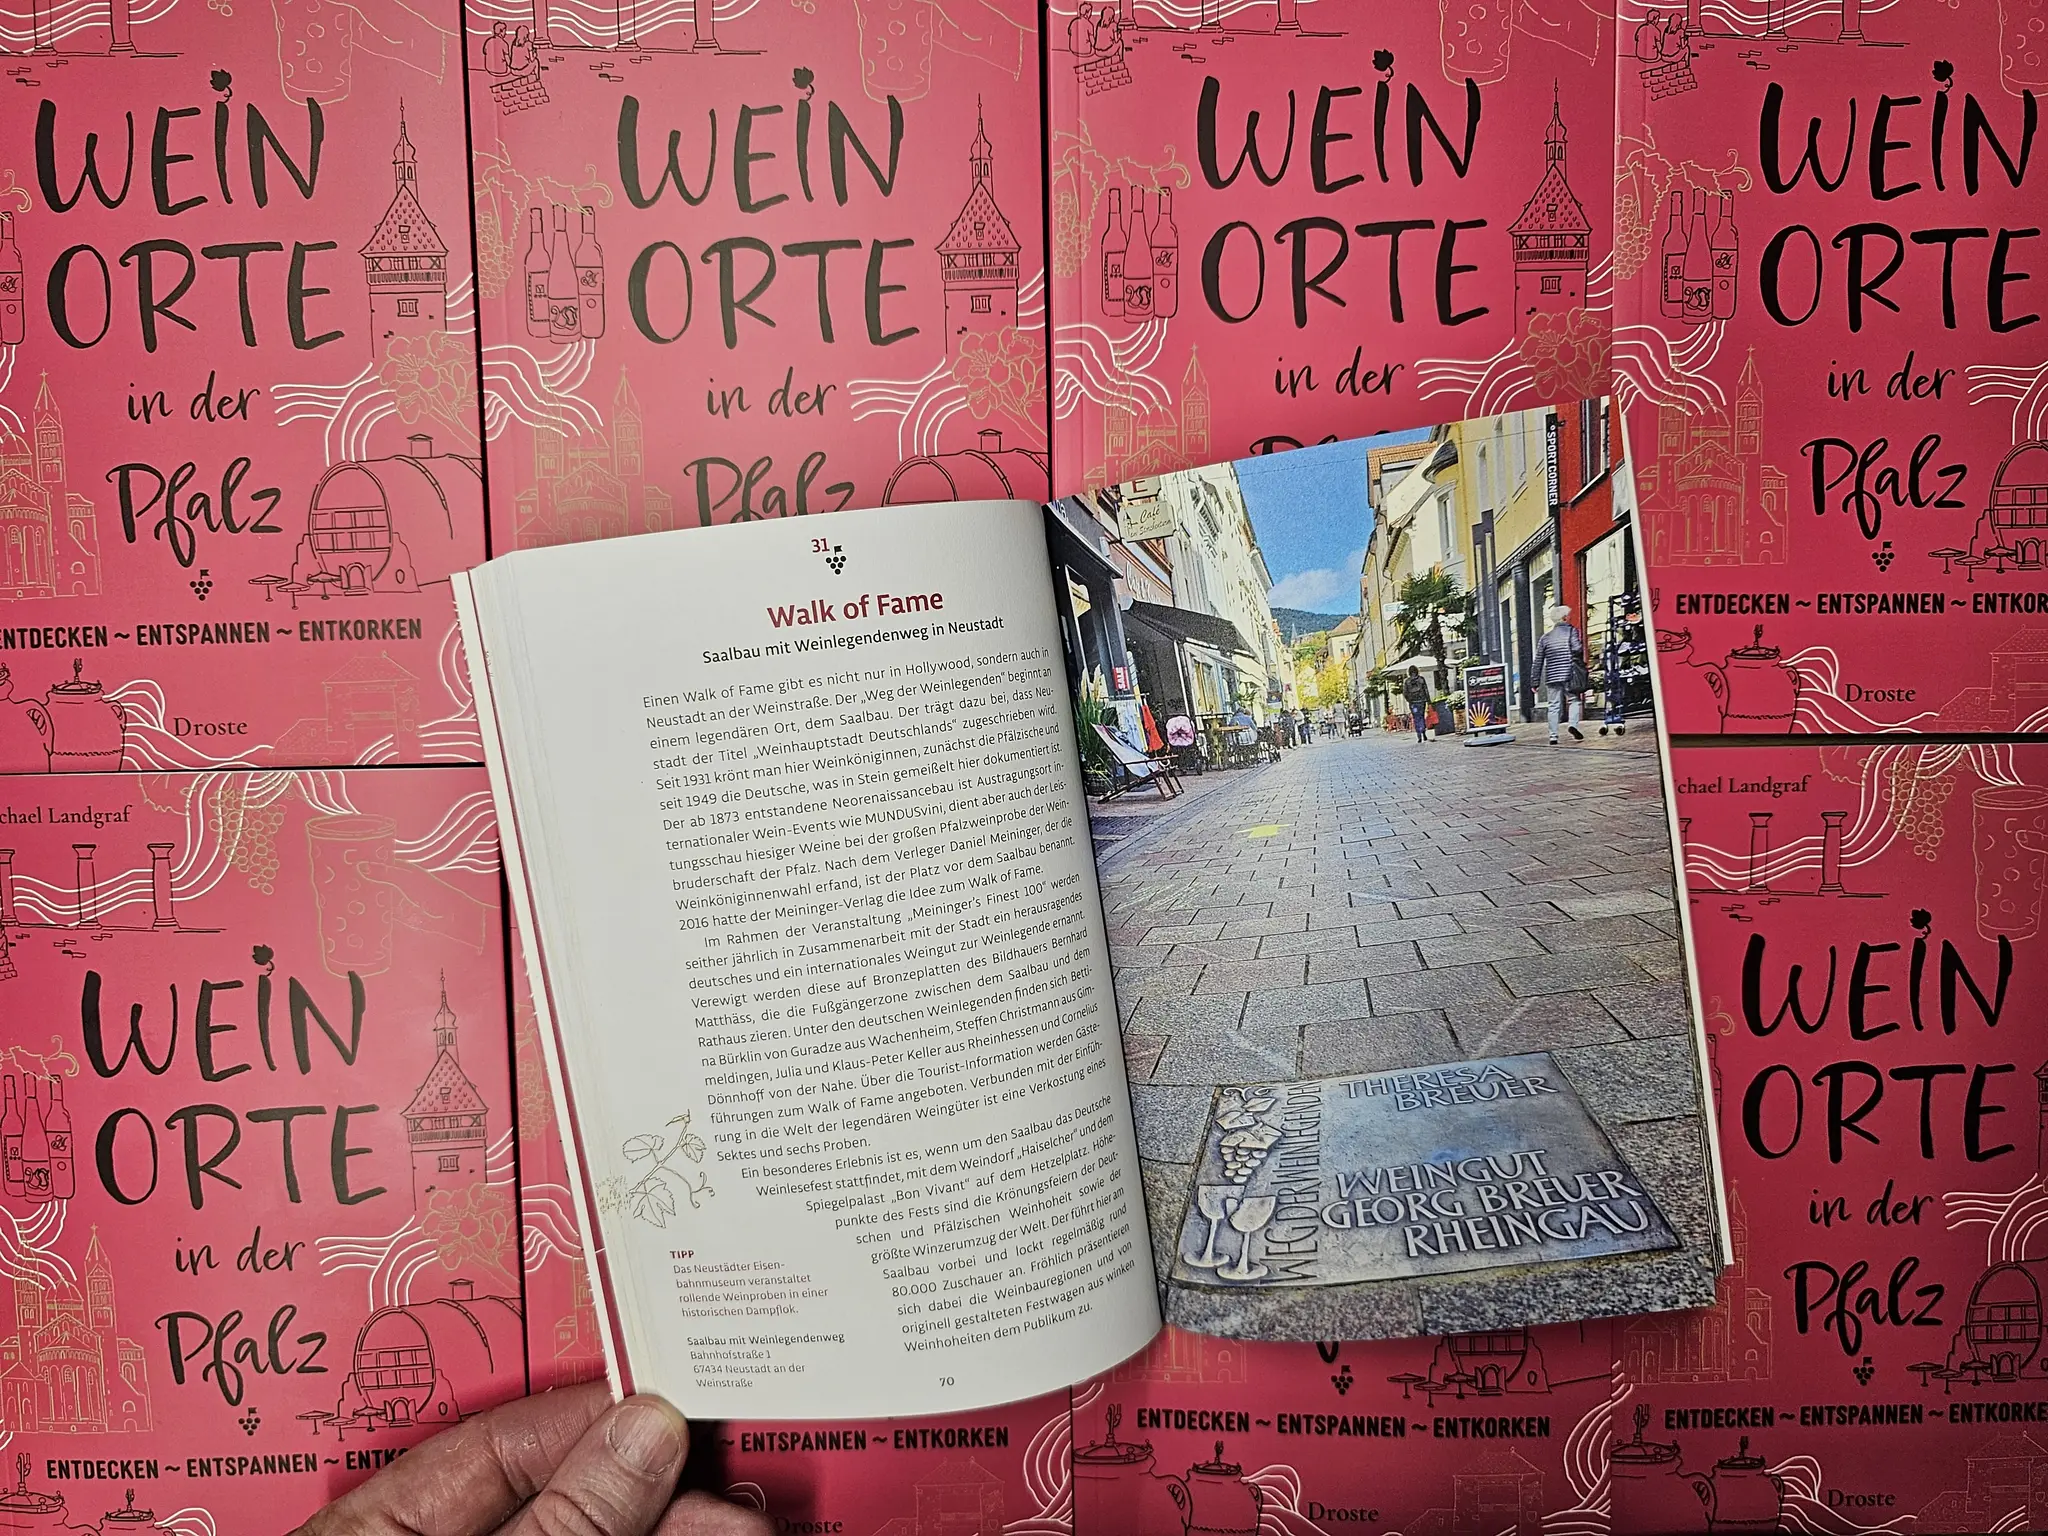 WEIN
ORTE
in der
Pfalz
ENTDECKEN ~ ENTSPANNEN ~ ENTKORKEN
Droste
WEIN
ORTE
in der
Pfalz
WEIN
ORTE
in der
WEIN
ORTE
in der
Pfalz
ENTDECKEN ~ ENTSPANNEN ~ ENTKOR
Droste
31
Walk of Fame
Saalbau mit Weinlegendenweg in Neustadt
Einen Walk of Fame gibt es nicht nur in Hollywood, sondern auch in
Neustadt an der Weinstraße. Der „Weg der Weinlegenden“ beginnt an
einem legendären Ort, dem Saalbau. Der trägt dazu bei, dass Neu-
stadt der Titel „Weinhauptstadt Deutschlands“ zugeschrieben wird.
Seit 1931 krönt man hier Weinköniginnen, zunächst die Pfälzische und
seit 1949 die Deutsche, was in Stein gemeißelt hier dokumentiert ist.
Der ab 1873 entstandene Neorenaissancebau ist Austragungsort in-
ternationaler Wein-Events wie MUNDUSvini, dient aber auch der Leis-
tungsschau hiesiger Weine bei der großen Pfalzweinprobe der Wein-
bruderschaft der Pfalz. Nach dem Verleger Daniel Meininger, der die
Weinköniginnenwahl erfand, ist der Platz vor dem Saalbau benannt.
2016 hatte der Meininger-Verlag die Idee zum Walk of Fame.
Im Rahmen der Veranstaltung „Meininger's Finest 100“ werden
seither jährlich in Zusammenarbeit mit der Stadt ein herausragendes
deutsches und ein internationales Weingut zur Weinlegende ernannt.
Verewigt werden diese auf Bronzeplatten des Bildhauers Bernhard
Matthäss, die die Fußgängerzone zwischen dem Saalbau und dem
Rathaus zieren. Unter den deutschen Weinlegenden finden sich Betti-
na Bürklin von Guradze aus Wachenheim, Steffen Christmann aus Gim-
meldingen, Julia und Klaus-Peter Keller aus Rheinhessen und Cornelius
Dönnhoff von der Nahe. Über die Tourist-Information werden Gäste-
führungen zum Walk of Fame angeboten. Verbunden mit der Einfüh-
rung in die Welt der legendären Weingüter ist eine Verkostung eines
Sektes und sechs Proben.
Ein besonderes Erlebnis ist es, wenn um den Saalbau das Deutsche
Weinlesefest stattfindet, mit dem Weindorf „Haiselcher“ und dem
Spiegelpalast „Bon Vivant“ auf dem Hetzelplatz. Höhe-
punkte des Fests sind die Krönungsfeiern der Deut-
schen und Pfälzischen Weinhoheit sowie der
größte Winzerumzug der Welt. Der führt hier am
Saalbau vorbei und lockt regelmäßig rund
80.000 Zuschauer an. Fröhlich präsentieren
sich dabei die Weinbauregionen und von
originell gestalteten Festwagen aus winken
Weinhoheiten dem Publikum zu.
TIPP
Das Neustädter Eisen-
bahnmuseum veranstaltet
rollende Weinproben in einer
historischen Dampflok.
Saalbau mit Weinlegendenweg
Bahnhofstraße 1
67434 Neustadt an der
Weinstraße
70
SPORTCORNER
Café
SALE
WEG DER WEINLEGENDEN
THERESA
BREUER
WEINGUT
GEORG BREUER
RHEINGAU
chael Landgraf
WEIN
ORTE
in der
Pfalz
ENTDECKEN ~ ENTSPANNEN ~ ENTK
~ ENTSPANNEN ~ ENTKORKEN
Droste
ENTDECKEN ~ ENTSPANNEN ~ ENTKORKEN
Droste
chael Landgraf
WEIN
ORTE
in der
Pfalz
ENTDECKEN ~ ENTSPANNEN ~ ENTKORKEN
Droste